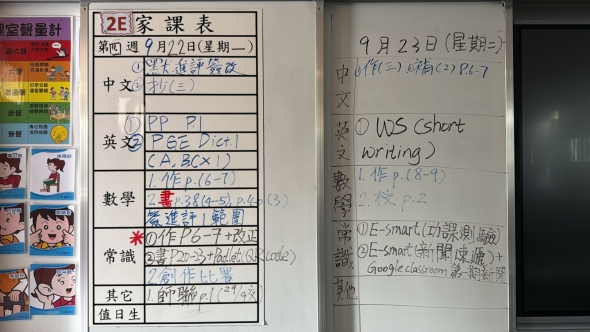 課室聲量計
2E 家課表
第四週 9月22日(星期一)
中文 ①默進評簽改
②抄(三)
英文 ① PP P.1
② PGE Dict.1
(A, B, C×1)
數學 1.作 p.(6-7)
2.書 p.38(4-5), p.40(3)
簽進評1範圍
常識 *①作P6-7+改正
②書P20-23+Padlet(QR code)
2.創作比賽
其它 1.師聯p.1(29/9交)
值日生
9月23日(星期二)
中文 ①作(三) ②補(2) P.6-7
英文 ① WS (short
writing)
數學 1.作 p.(8-9)
2.校 p.2
常識 ①E-smart(功課測驗)
②E-smart(新聞速遞)+
Google classroom
其他